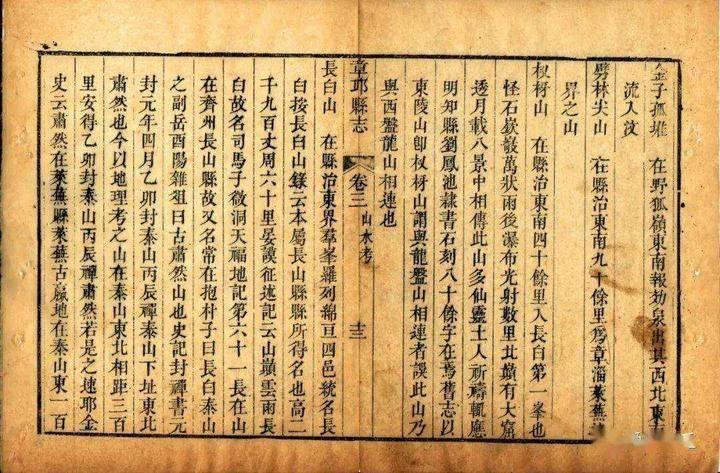 金子孤堆 在野狐嶺東南報幼泉出其西北東南
流入汶
劈林尖山 在縣治東南九十餘里爲章淄萊蕪
界之山
杈枒山 在縣治東南四十餘里入長白第一峯也
怪石嶔巇萬狀雨後瀑布光射數里北巔有大窟
透月載八景中相傳此山多仙靈土人祈禱輒應
明知縣劉鳳池隷書石刻八十餘字在焉舊志以
東陵山卽杈枒山謂與龍盤山相連者誤此山乃
與西盤龍山相連也
章邱縣志 卷三 山水考 十三
長白山 在縣治東界羣峯羅列綿亘四邑統名長
白按長白山錄云本屬長山縣縣所得名也高二
千九百丈周六十里晏謨征述記云山嶺雲雨長
白故名司馬子微洞天福地記第六十一長在山
在齊州長山縣故又名常在抱朴子曰長白泰山
之副岳酉陽雜俎曰古肅然山也史記封禪書元
封元年四月乙卯封泰山丙辰禪泰山下址東北
肅然也今以地理考之山在泰山東北相距三百
里安得乙卯封泰山丙辰禪肅然若是之速耶金
史云肅然在萊蕪縣萊蕪古嬴地在泰山東一百